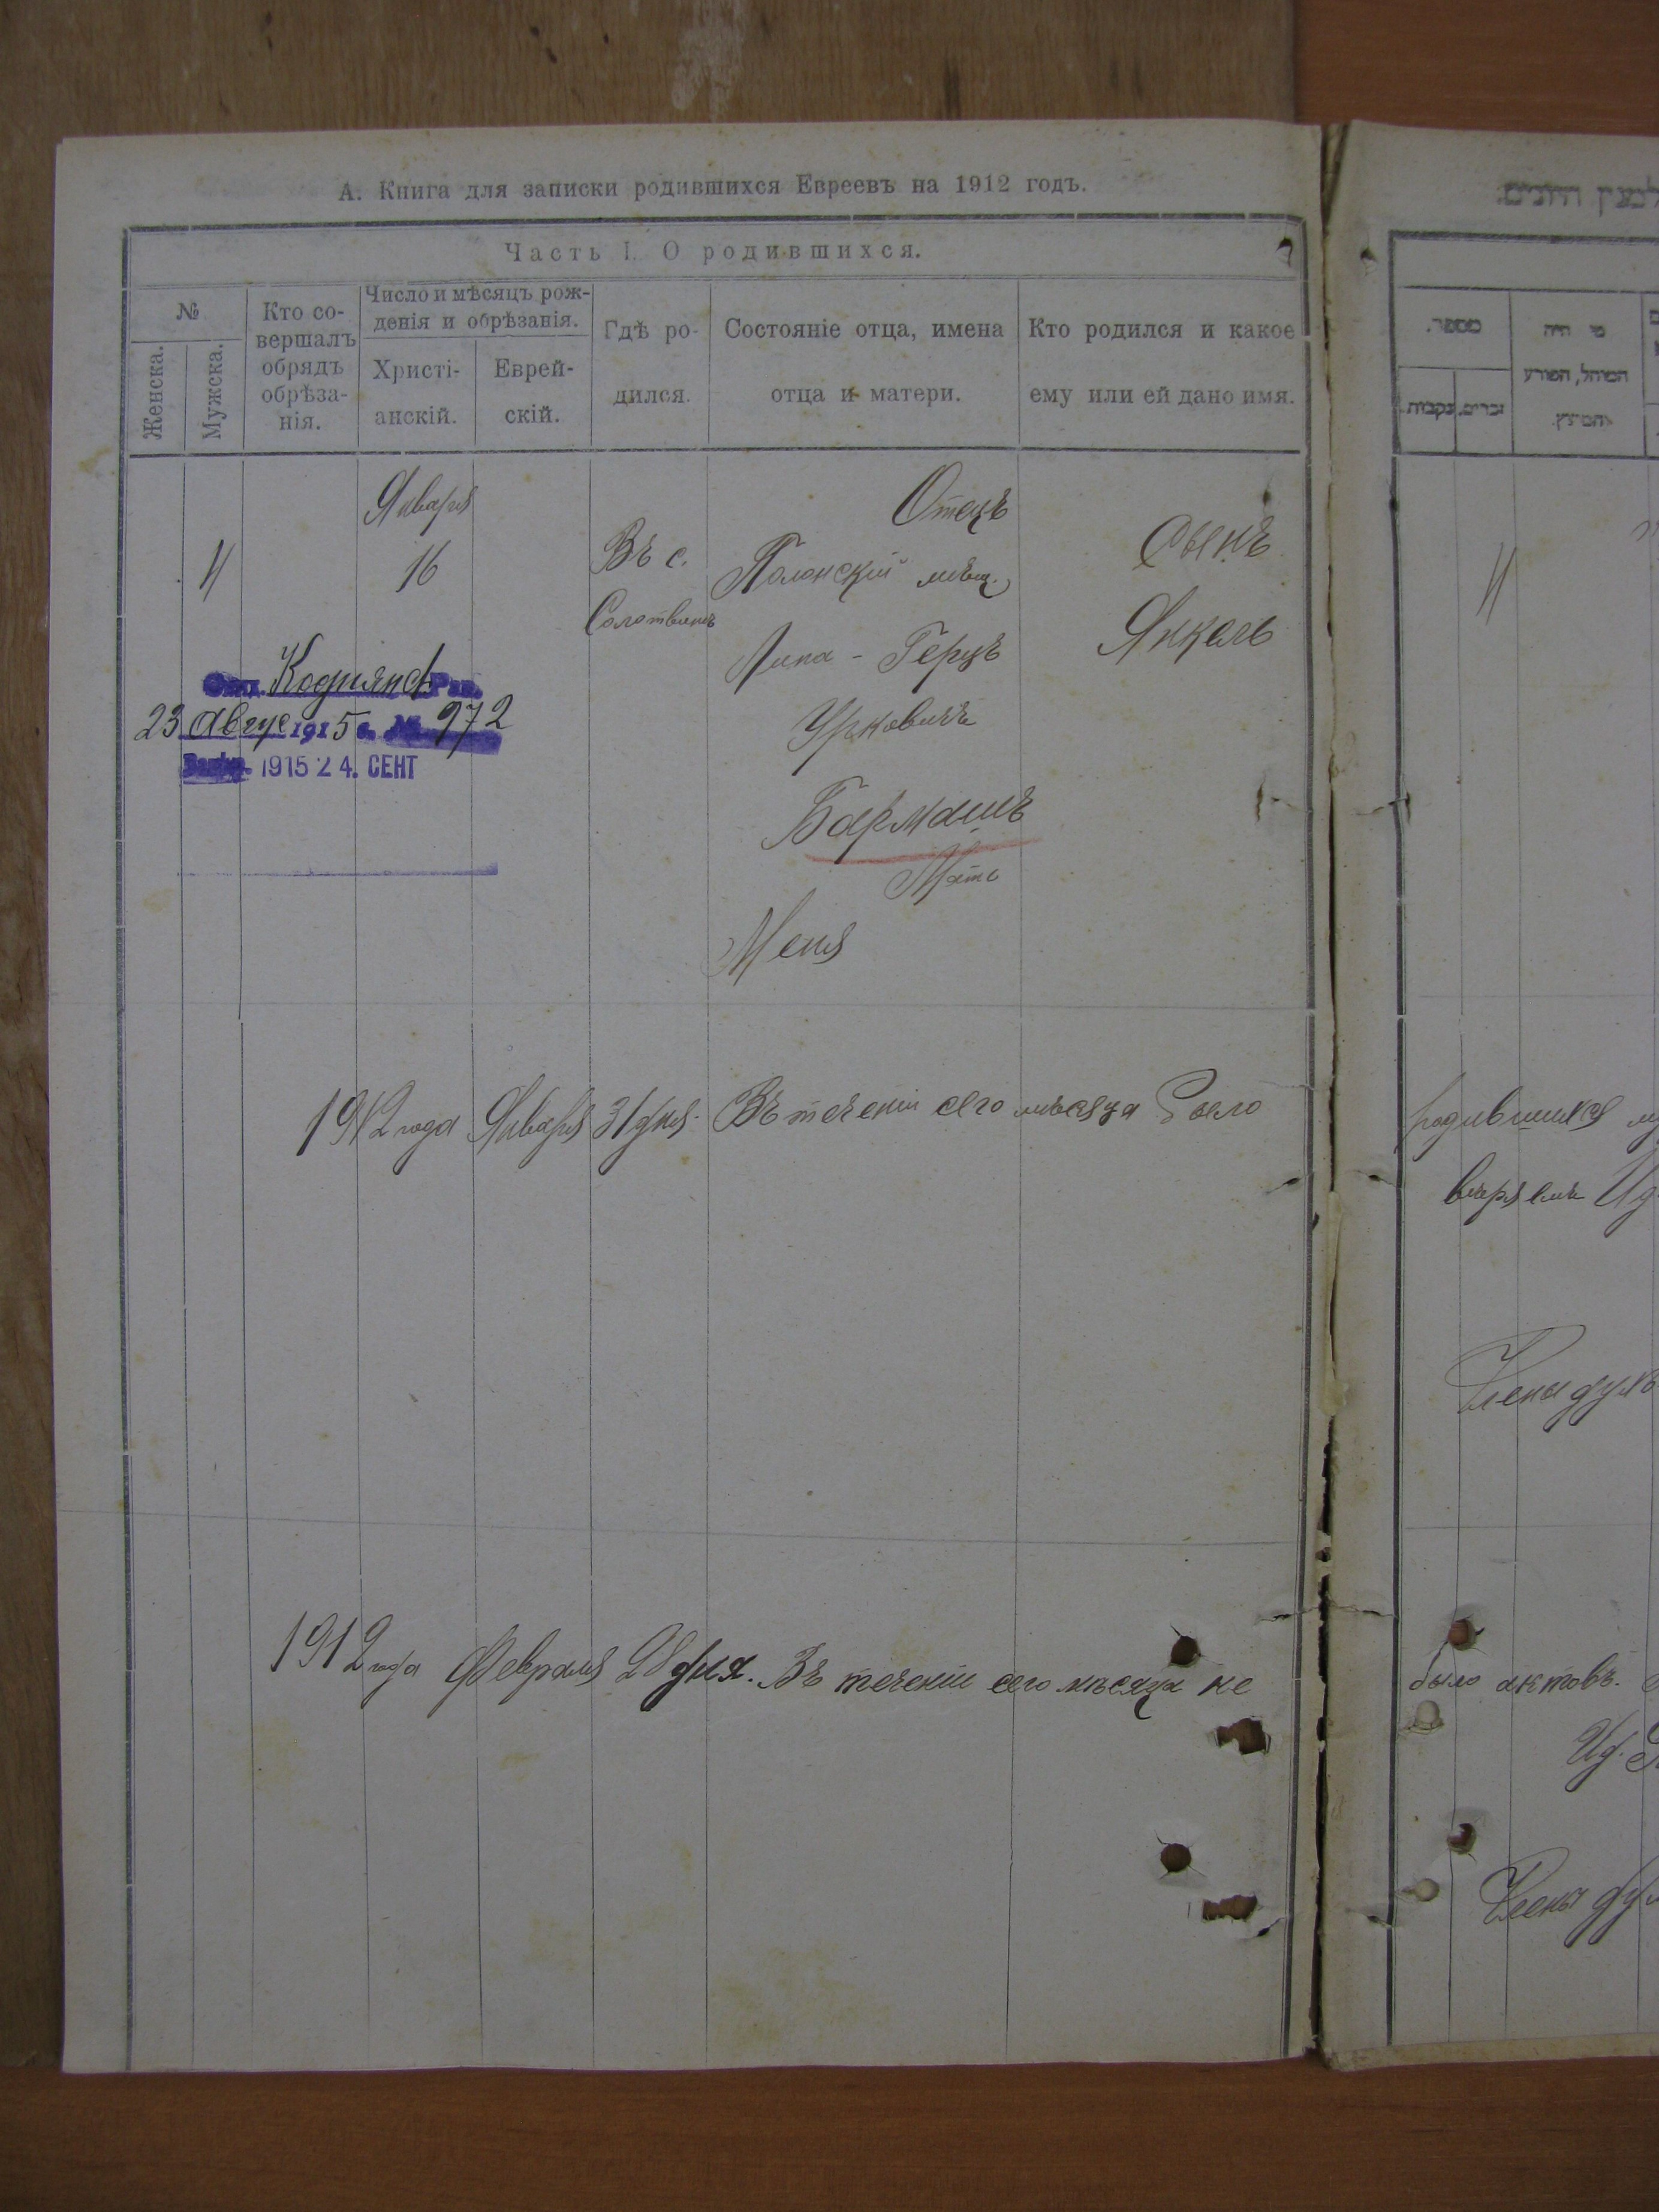 А. Книга для записки родившихся Евреевъ на 1912 годъ.
Часть I. О родившихся.
№
Женска.
Мужска.
Кто со-
вершалъ
обрядъ
обрѣза-
нія.
Число и мѣсяцъ рож-
денія и обрѣзанія.
Христі-
анскій.
Еврей-
скій.
Гдѣ ро-
дился.
Состояніе отца, имена
отца и матери.
Кто родился и какое
ему или ей дано имя.
Января
16
Въ с.
Отецъ
Полонскій мѣщ.
Липа - Герцъ
Урковичъ
Бармашъ
Мать
Меня
Сынъ
Янкель
23 Авгус 1915 г. № 972
1915 24. СЕНТ
1912 года Января 31 дня. Въ теченіи сего мѣсяца было
1912 года Февраля 28 дня. Въ теченіи сего мѣсяца не
מספר.
זכרים.
נקבות.
מי היה
המוהל, הפורע
והמוצץ.
родившихся
было актовъ.